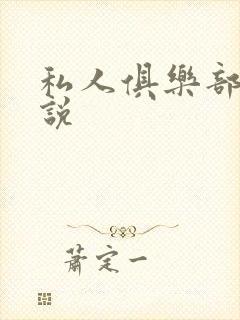 私人俱樂部
說
蕭定一